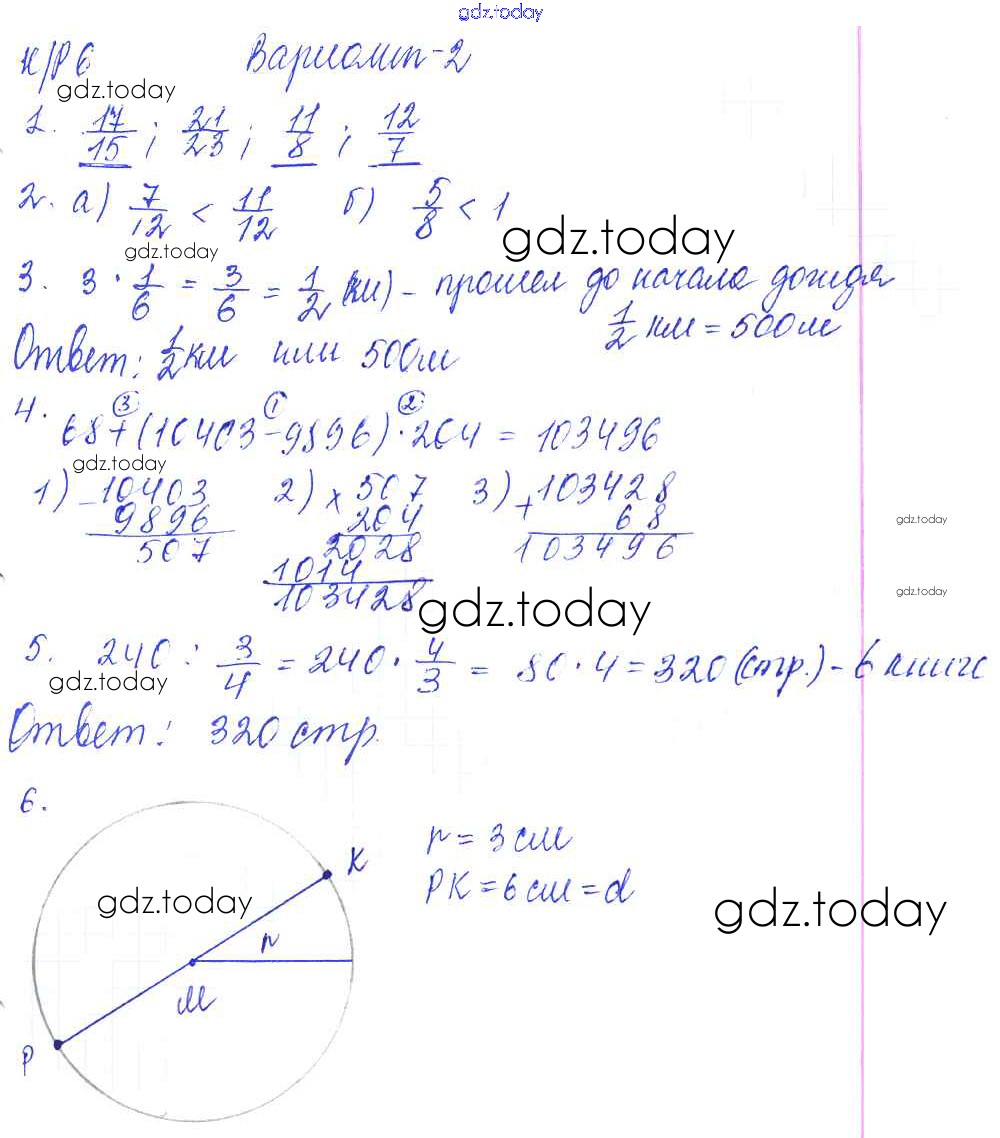 gdz.today
К/Р 6 Вариант-2
gdz.today
1. 17/15 ; 21/23 ; 11/8 ; 12/7
2. а) 7/12 < 11/12 б) 5/8 < 1
gdz.today
gdz.today
3. 3 · 1/6 = 3/6 = 1/2 (км) - прошел до начала дождя
1/2 км = 500 м
Ответ: 1/2 км или 500 м
4. 68 + (10403 - 9896) · 204 = 103496
3 1 2
gdz.today
1) 10403 2) 507 3) 103428
- 9896 × 204 + 68
507 2028 103496
1014
103428
gdz.today
gdz.today
gdz.today
5. 240 : 3/4 = 240 · 4/3 = 80 · 4 = 320 (стр.) - в книге
gdz.today
Ответ: 320 стр.
6.
К
r = 3 см
PK = 6 см = d
gdz.today
gdz.today
r
M
P